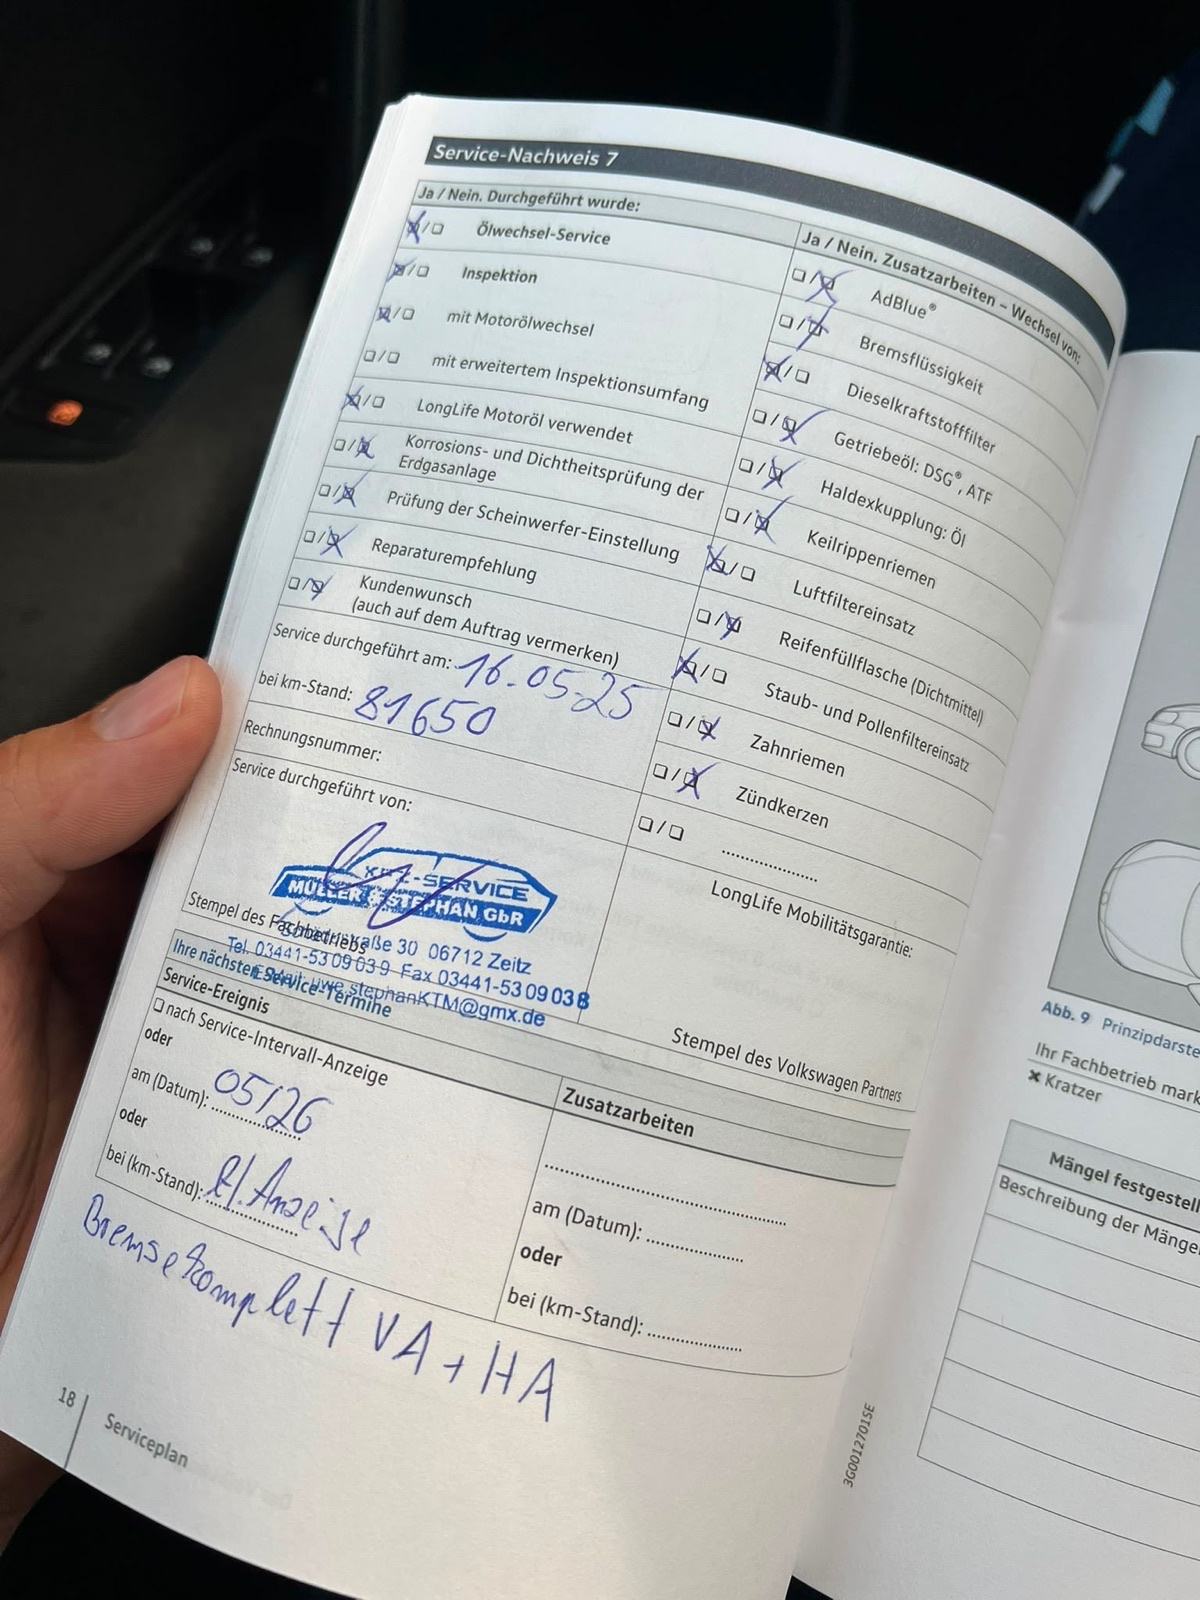 Service-Nachweis 7
Ja / Nein. Durchgeführt wurde:
Ölwechsel-Service
Inspektion
mit Motorölwechsel
mit erweitertem Inspektionsumfang
LongLife Motoröl verwendet
Korrosions- und Dichtheitsprüfung der
Erdgasanlage
Prüfung der Scheinwerfer-Einstellung
Reparaturempfehlung
Kundenwunsch
(auch auf dem Auftrag vermerken)
Service durchgeführt am: 16.05.25
bei km-Stand: 81650
Rechnungsnummer:
Service durchgeführt von:
KFZ-SERVICE
MÜLLER & STEPHAN GbR
Stempel des Fachbetriebs
straße 30 06712 Zeitz
Tel. 03441-53 09 03 9 Fax 03441-53 09 03 8
uwe.stephanKTM@gmx.de
Ja / Nein. Zusatzarbeiten – Wechsel von:
AdBlue®
Bremsflüssigkeit
Dieselkraftstofffilter
Getriebeöl: DSG®, ATF
Haldexkupplung: Öl
Keilrippenriemen
Luftfiltereinsatz
Reifenfüllflasche (Dichtmittel)
Staub- und Pollenfiltereinsatz
Zahnriemen
Zündkerzen
LongLife Mobilitätsgarantie:
Stempel des Volkswagen Partners
Ihre nächsten Service-Termine
Service-Ereignis
nach Service-Intervall-Anzeige
oder
am (Datum): 05/26
oder
bei (km-Stand): lt. Anzeige
Zusatzarbeiten
am (Datum):
oder
bei (km-Stand):
Bremse komplett VA + HA
18
Serviceplan
3G0012701SE
Abb. 9 Prinzipdarste
Ihr Fachbetrieb mark
Kratzer
Mängel festgestell
Beschreibung der Mängel